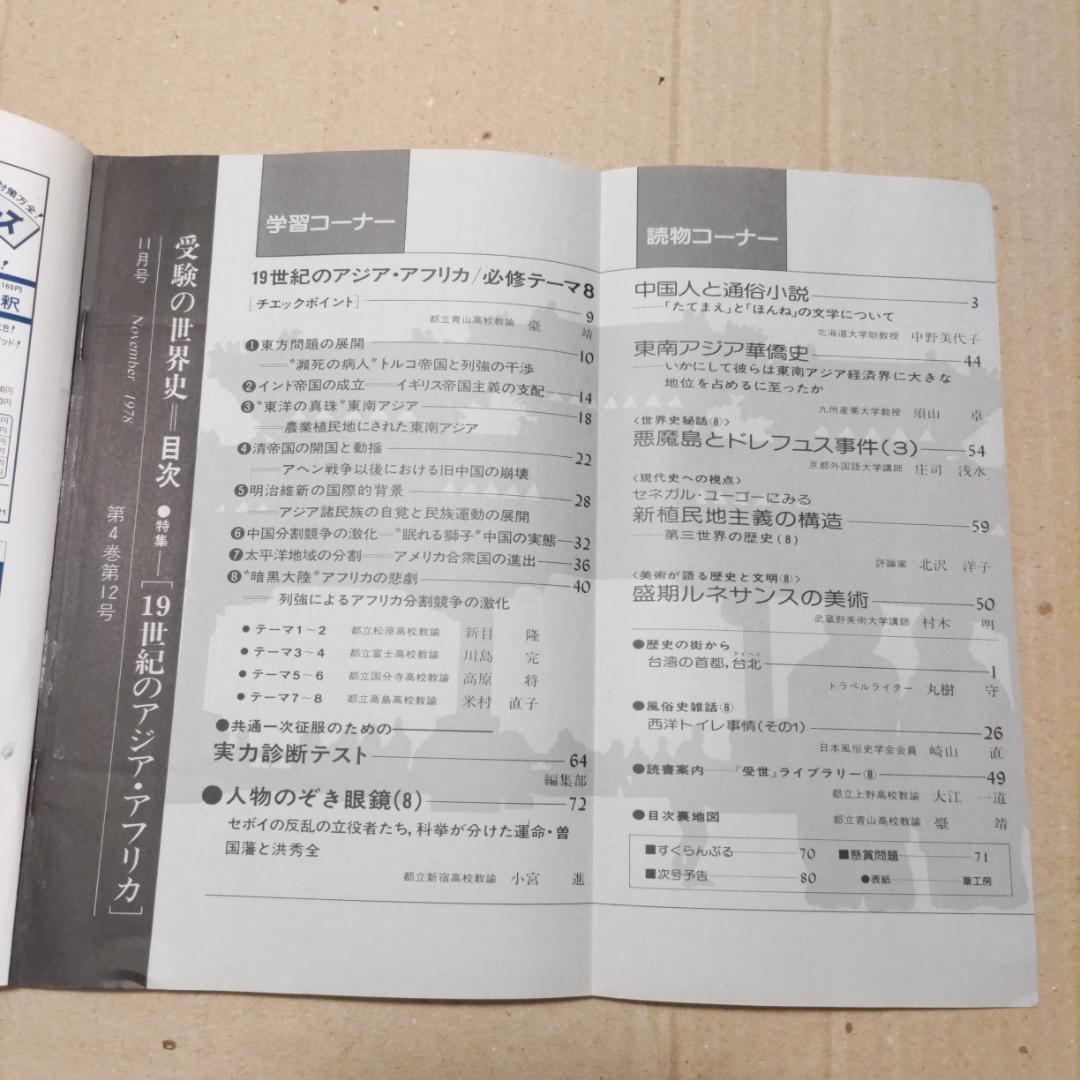 対策万全!
ス
!
160円
釈
受験の世界史＝目次 ●特集―[19世紀のアジア・アフリカ]
11月号 November 1978 第4巻第12号
学習コーナー
19世紀のアジア・アフリカ/必修テーマ8
[チエックポイント] 9
都立青山高校教諭 臺 靖
❶東方問題の展開 10
――“瀕死の病人”トルコ帝国と列強の干渉
❷インド帝国の成立――イギリス帝国主義の支配 14
❸“東洋の真珠”東南アジア 18
――農業植民地にされた東南アジア
❹清帝国の開国と動揺 22
――アヘン戦争以後における旧中国の崩壊
❺明治維新の国際的背景 28
――アジア諸民族の自覚と民族運動の展開
❻中国分割競争の激化――“眠れる獅子”中国の実態 32
❼太平洋地域の分割――アメリカ合衆国の進出 36
❽“暗黒大陸”アフリカの悲劇 40
――列強によるアフリカ分割競争の激化
●テーマ1～2 都立松原高校教諭 新目 隆
●テーマ3～4 都立富士高校教諭 川島 完
●テーマ5～6 都立国分寺高校教諭 高原 将
●テーマ7～8 都立高島高校教諭 米村 直子
●共通一次征服のための
実力診断テスト 64
編集部
●人物のぞき眼鏡(8) 72
セポイの反乱の立役者たち,科挙が分けた運命・曽
国藩と洪秀全
都立新宿高校教諭 小宮 進
読物コーナー
中国人と通俗小説 3
――「たてまえ」と「ほんね」の文学について
北海道大学助教授 中野美代子
東南アジア華僑史 44
――いかにして彼らは東南アジア経済界に大きな
地位を占めるに至ったか
九州産業大学教授 須山 卓
〈世界史秘話⑧〉
悪魔島とドレフュス事件(3) 54
京都外国語大学講師 庄司 浅水
〈現代史への視点〉
セネガル・ユーゴーにみる
新植民地主義の構造 59
――第三世界の歴史(8)
評論家 北沢 洋子
〈美術が語る歴史と文明⑧〉
盛期ルネサンスの美術 50
武蔵野美術大学講師 村木 明
●歴史の街から
台湾の首都,台北 1
タイペイ
トラベルライター 丸樹 守
●風俗史雑話⑧
西洋トイレ事情(その1) 26
日本風俗史学会会員 崎山 直
●読書案内――『受世』ライブラリー⑧ 49
都立上野高校教諭 大江 一道
●目次裏地図 都立青山高校教諭 臺 靖
■すくらんぶる 70 ■懸賞問題 71
■次号予告 80 ●表紙 葦工房